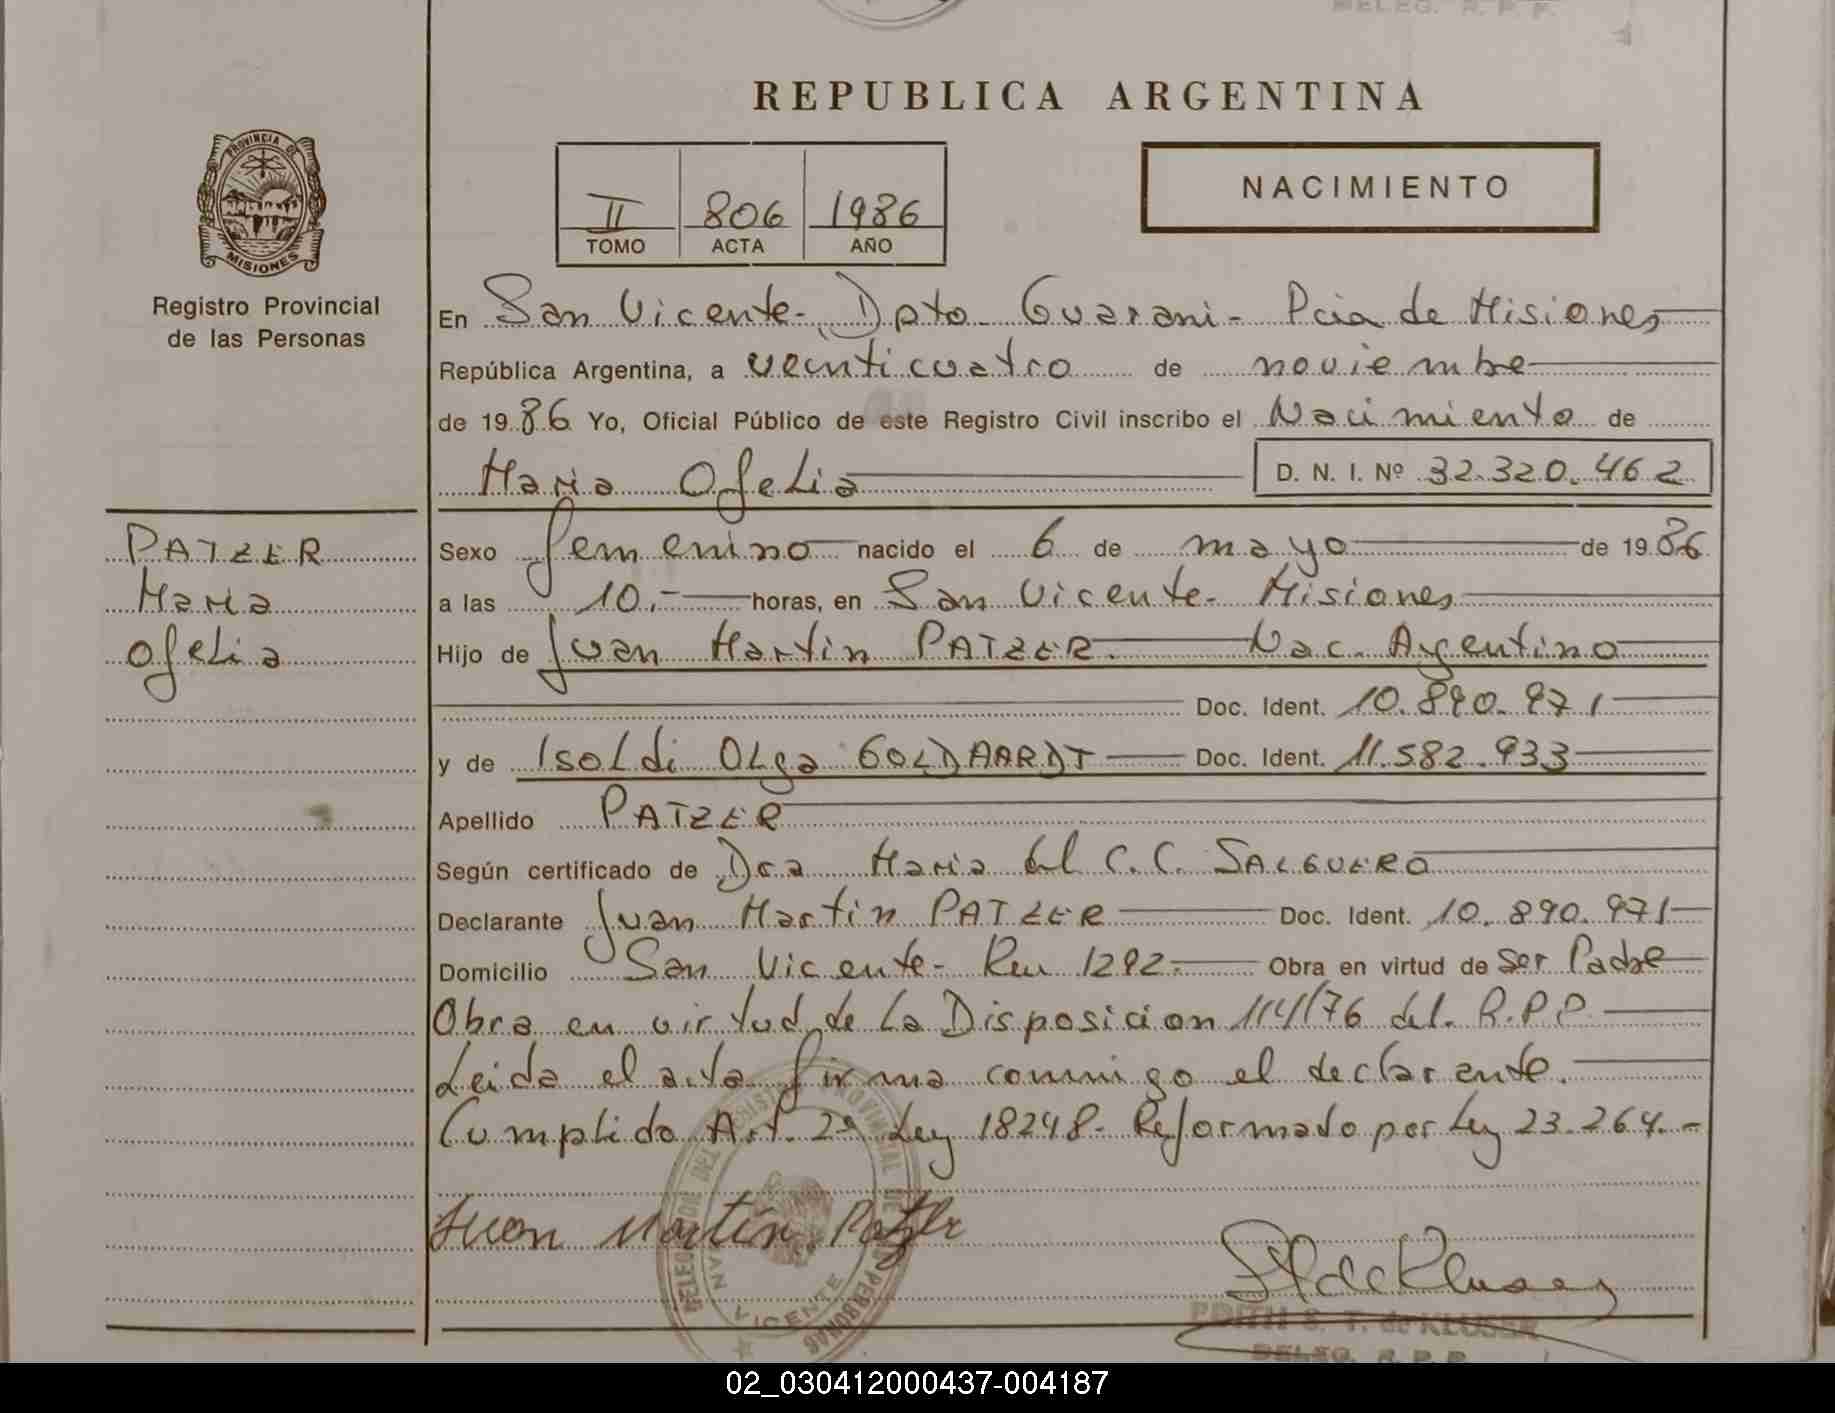 DELEG. R. P. P.
REPUBLICA ARGENTINA
PROVINCIA DE
MISIONES
Registro Provincial
de las Personas
II 806 1986
TOMO ACTA AÑO
NACIMIENTO
En San Vicente- Dpto Guarani- Pcia de Misiones
República Argentina, a veinticuatro de noviembre
de 1986 Yo, Oficial Público de este Registro Civil inscribo el Nacimiento de
Maria Ofelia D. N. I. Nº 32.320.462
PATZER
Maria
Ofelia
Sexo femenino nacido el 6 de mayo de 1986
a las 10.- horas, en San Vicente- Misiones
Hijo de Juan Martin PATZER. Nac. Argentino
Doc. Ident. 10.890.971
y de Isoldi Olga GOLDHARDT Doc. Ident. 11.582.933
Apellido PATZER
Según certificado de Dra Maria del C.C. SALGUERO
Declarante Juan Martin PATZER Doc. Ident. 10.890.971
Domicilio San Vicente- Ru 1292.- Obra en virtud de Ser Padre
Obra en virtud de la Disposicion 114/76 del R.P.P.
Leida el acta firma conmigo el declarente.
Cumplido Art. 2º Ley 18248- Reformado por Ley 23.264.-
Juan Martin Patzer
DELEG. DEL REGISTRO PROVINCIAL DE LAS PERSONAS
SAN VICENTE
EDITH S. T. de KLUSER
DELEG. R. P. P.
02_030412000437-004187